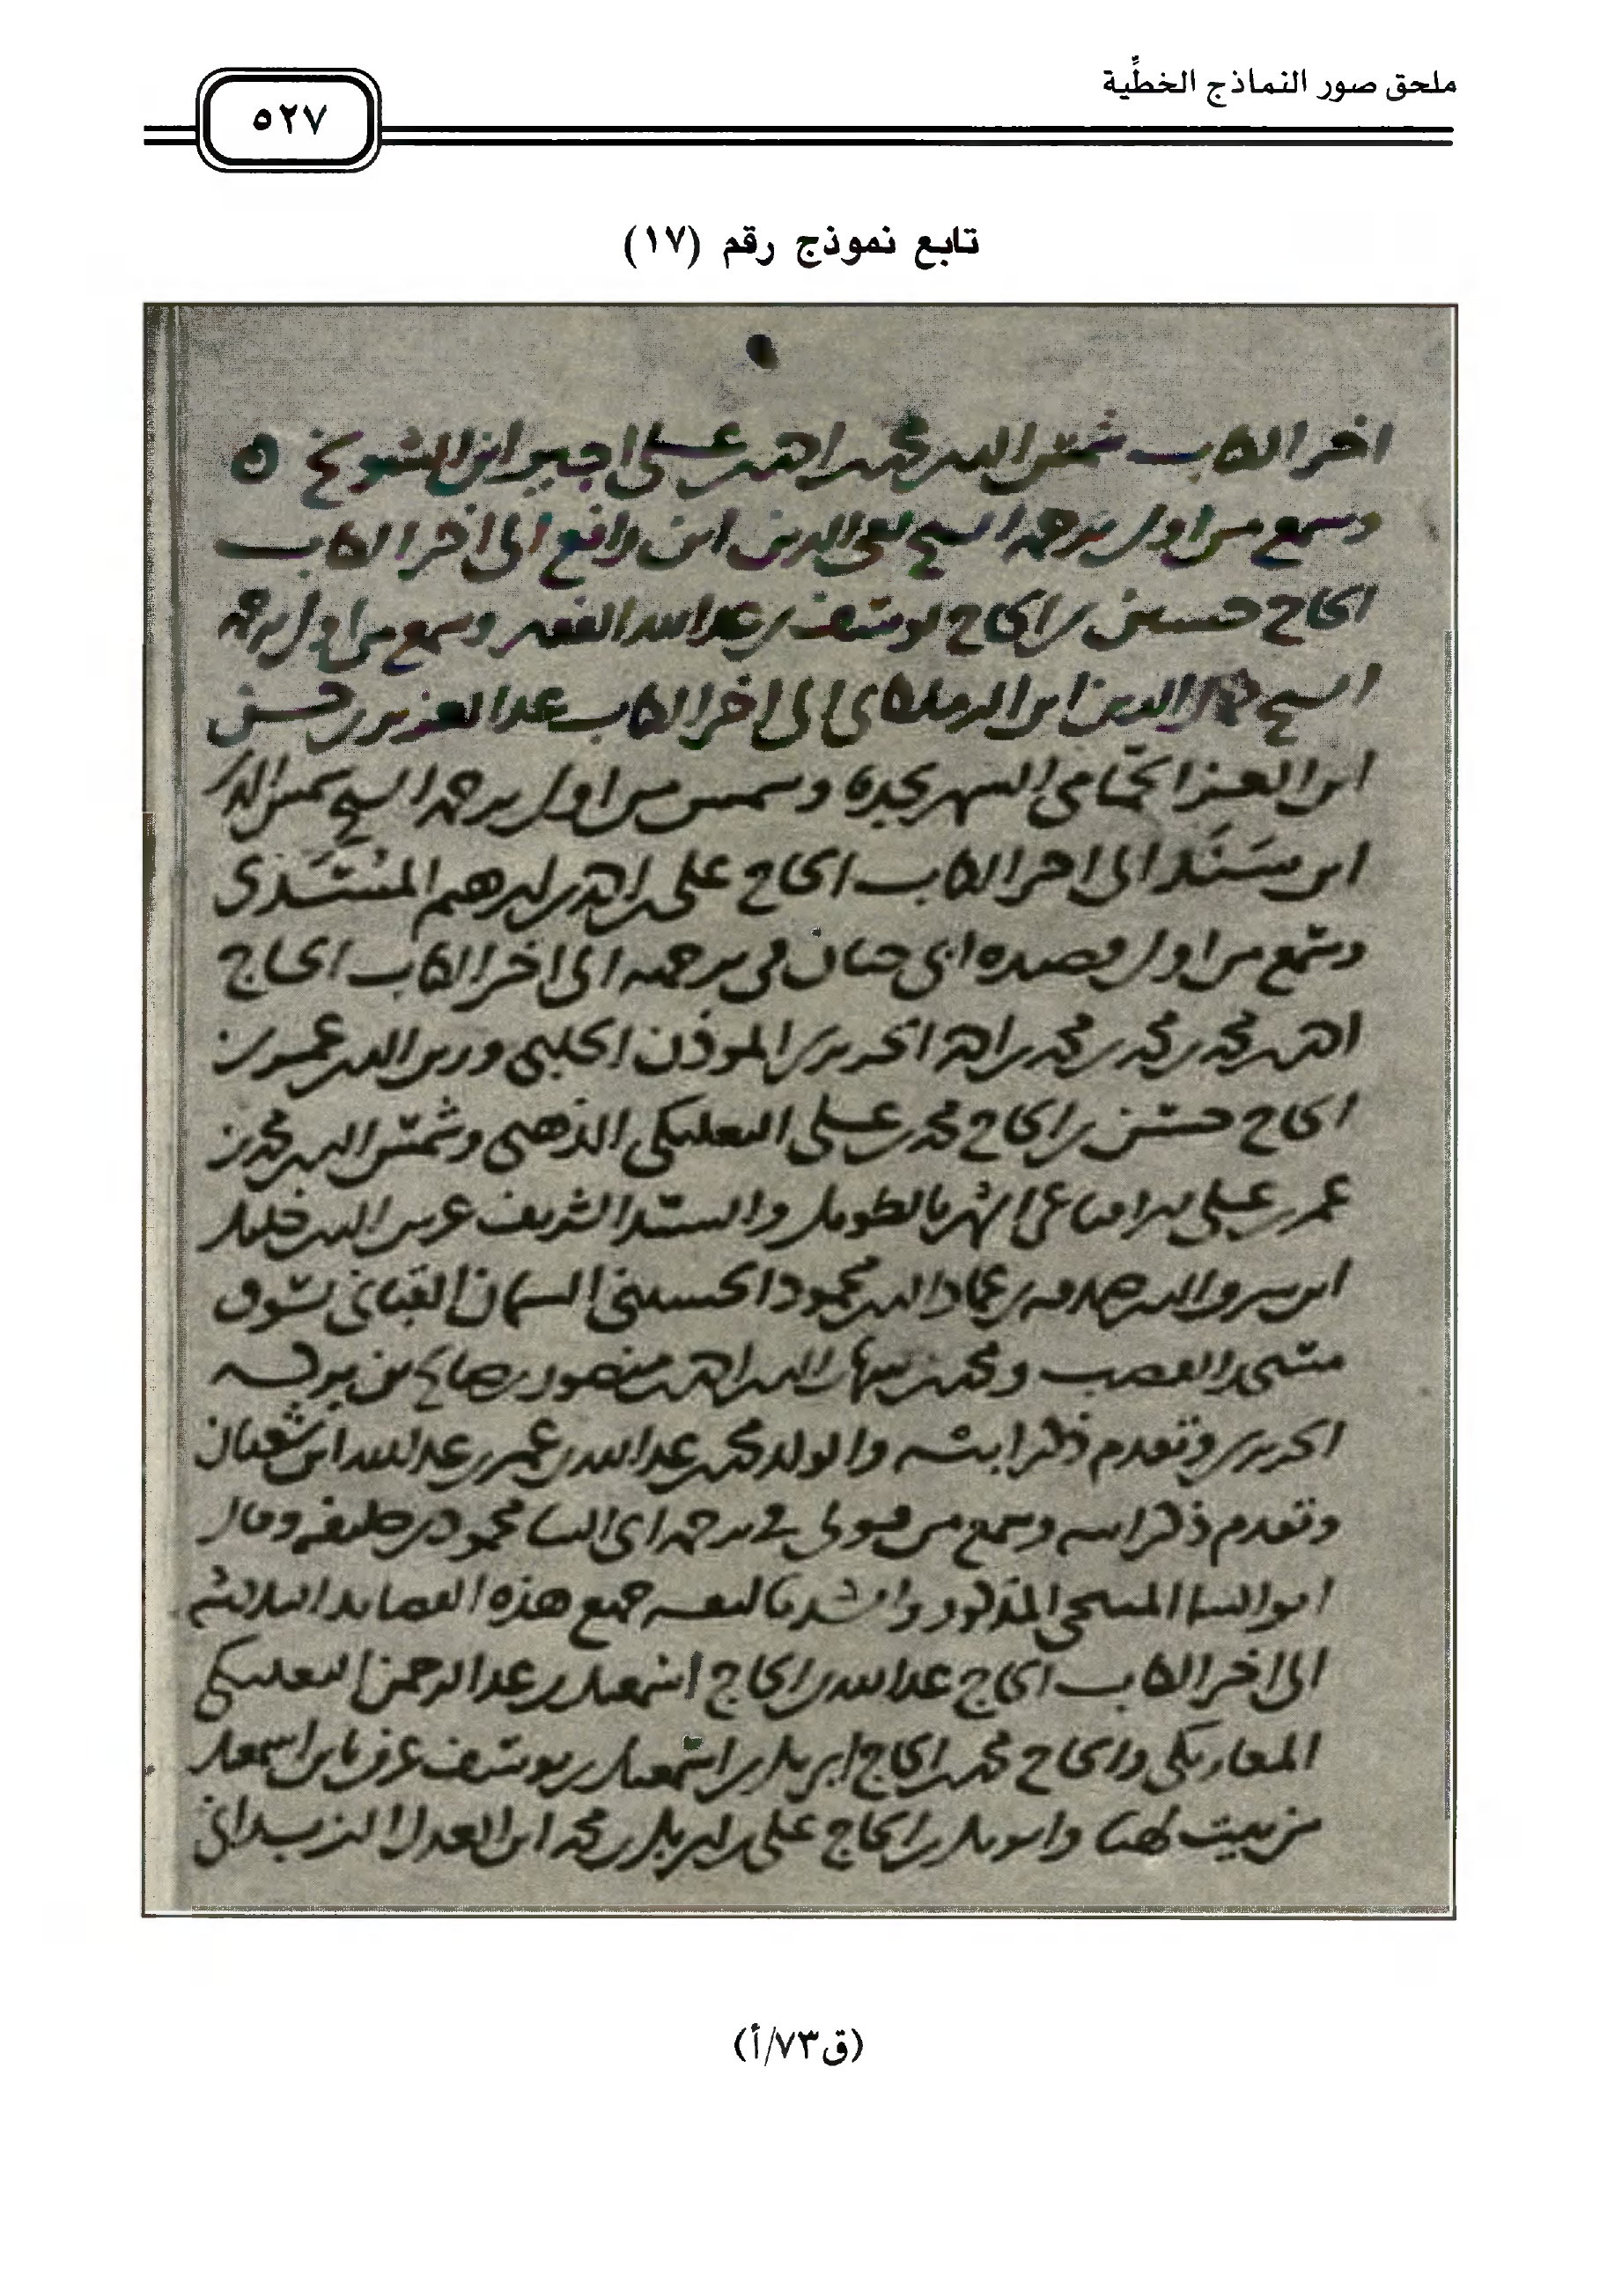 ملحق صور النماذج الخطِّية
٥٢٧
تابع نموذج رقم (١٧)
اخر الكاب شمس الدين محمد احمد على اجير ابن الشويخ ٥
وسمع من اول ترجمه الشيخ تقي الدين ابن رافع الى اخر الكاب
الحاج حسين بن الحاج يوسف بن عبدالله الفقير وسمع من اول ترجمه
الشيخ الدين ابن الزملكاني الى اخر الكاب عبدالعزيز بن حسن
ابن العز الشهير وسمع من اول ترجمه الشيخ شمس الدين
ابن سَنَد الى اخر الكاب الحاج على بن احمد بن ابرهيم
وسمع من اول قصيده ابي حيان في ترجمه الى اخر الكاب الحاج
احمد بن محمد بن محمد بن محمد بن احمد الحريري المؤذن الحلبي وزين الدين عمر بن
الحاج حسن بن الحاج محمد بن على البعلبكي الذهبي وشمس الدين محمد بن
عمر بن على بالطويل والسيد الشريف غرس الدين خليل
ابن الدين بن عماد الدين محمود الحسيني السمان القباني بسوق
ومحمد بن شهاب الدين احمد بن منصور بن صالح بن
الحريري وتقدم ذكر ابنه والولد محمد بن عبدالله بن عمر بن عبدالله ابن شعبان
وتقدم ذكر ابيه وسمع من قولي في ترجمه ابي الثنا محمود بن خليفه وقال
ابو الثنا المنبجي المذكور وانشدنا لنفسه جميع هذه القصايد الثلاثه
الى اخر الكاب الحاج عبدالله بن الحاج اسمعيل بن عبدالرحمن البعلبكي
والحاج محمد بن الحاج ابي بكر بن اسمعيل بن يوسف عرف بابن اسمعيل
من بيت لهيا وابو بكر بن الحاج على بن ابي بكر بن محمد ابن العدل الزبداني
(ق٧٣/أ)